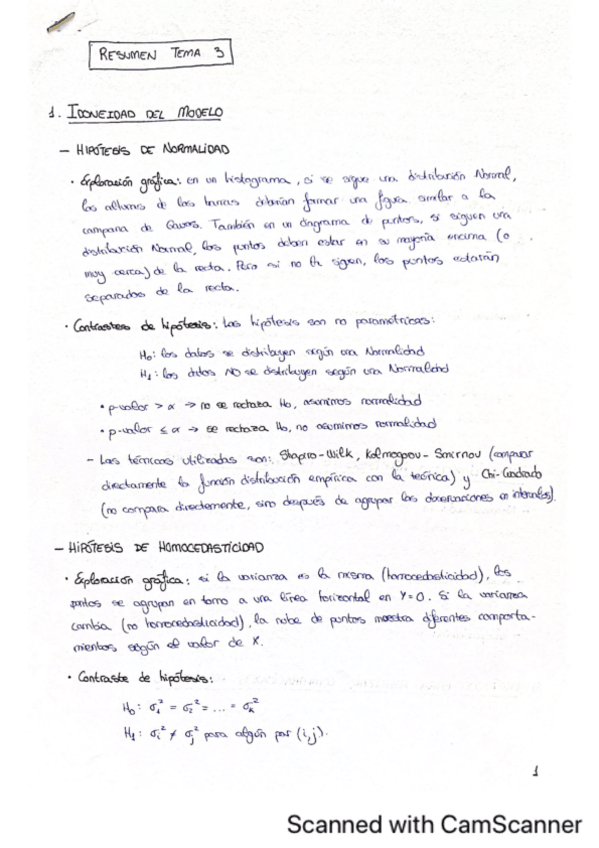 RESUMEN TEMA 3
1. IDONEIDAD DEL MODELO
- HIPÓTESIS DE NORMALIDAD
• Exploración gráfica: en un histograma, si se sigue una distribución Normal,
las alturas de las barras deberían formar una figura similar a la
campana de Gauss. También en un diagrama de puntos, si siguen una
distribución Normal, los puntos deben estar en su mayoría encima (o
muy cerca) de la recta. Pero si no la siguen, los puntos estarán
separados de la recta.
• Contrastes de hipótesis: Las hipótesis son no paramétricas:
H0: los datos se distribuyen según una Normalidad
H1: los datos NO se distribuyen según una Normalidad
• p-valor > α → no se rechaza H0, asumimos normalidad
• p-valor ≤ α → se rechaza H0, no asumimos normalidad
- Las técnicas utilizadas son: Shapiro-Wilk, Kolmogorov-Smirnov (comparar
directamente la función distribución empírica con la teórica) y Chi-Cuadrado
(no compara directamente, sino después de agrupar las observaciones en intervalos).
- HIPÓTESIS DE HOMOCEDASTICIDAD
• Exploración gráfica: si la varianza es la misma (homocedasticidad), los
puntos se agrupan en torno a una línea horizontal en Y=0. Si la varianza
cambia (no homocedasticidad), la nube de puntos muestra diferentes comporta-
mientos según el valor de X.
• Contraste de hipótesis:
H0: σ1² = σ2² = ... = σk²
H1: σi² ≠ σj² para algún par (i,j).
1
Scanned with CamScanner